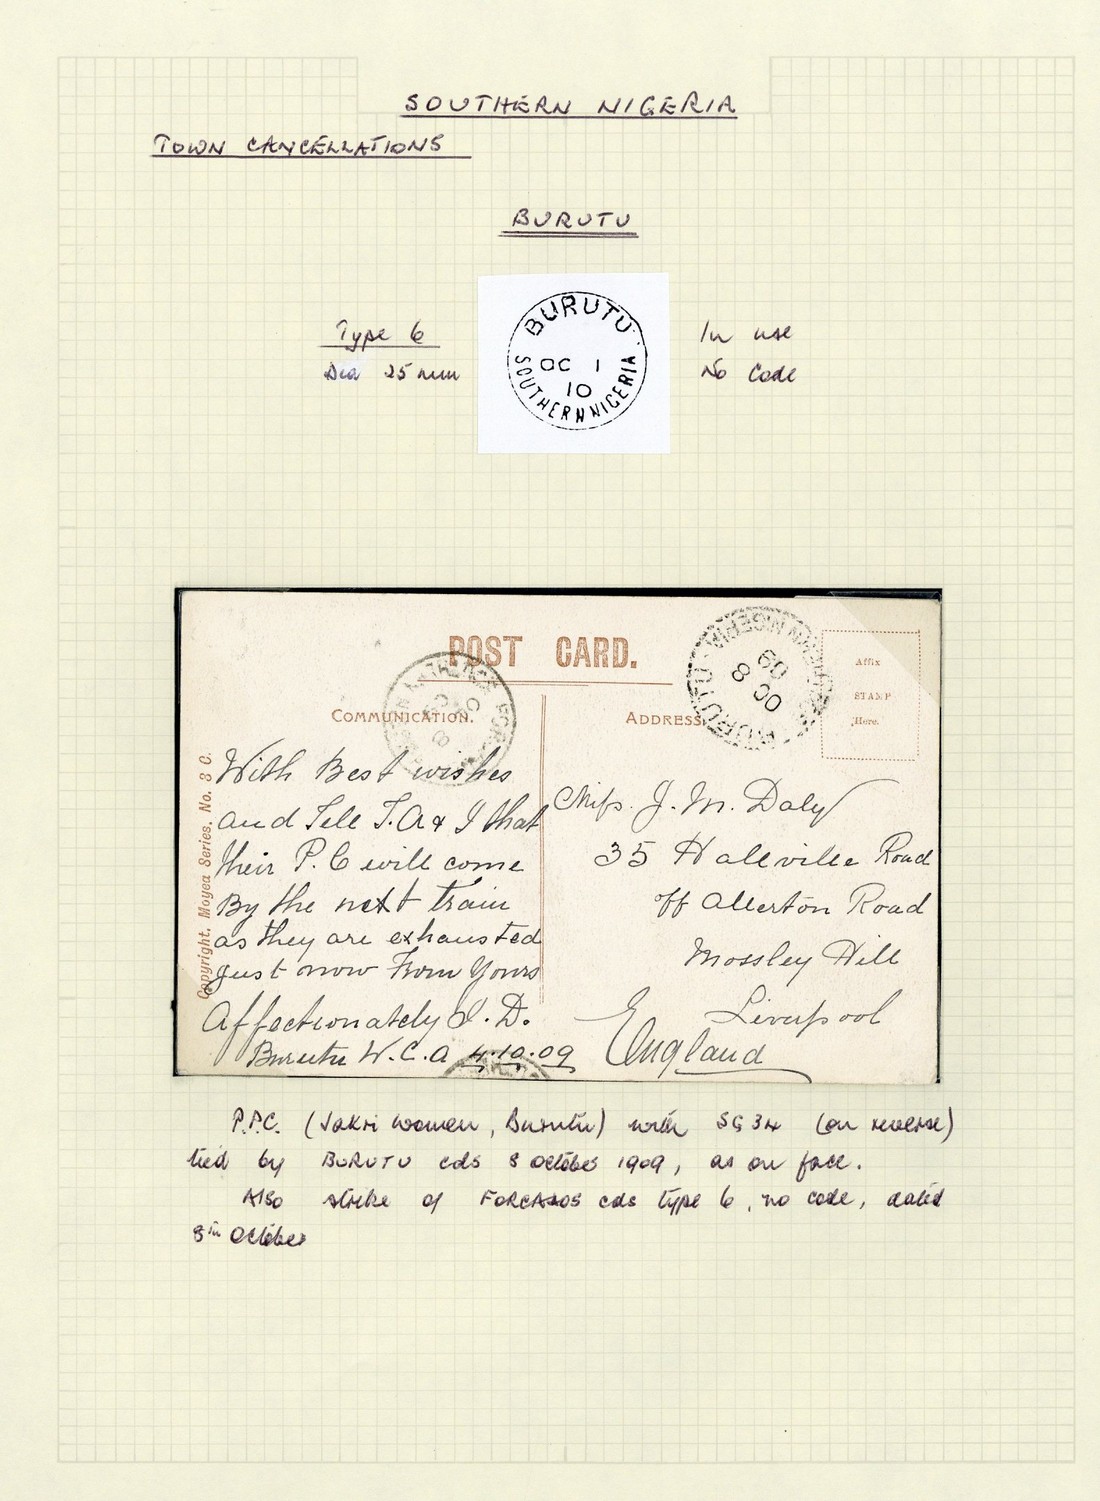 SOUTHERN NIGERIA
TOWN CANCELLATIONS
BURUTU
Type 6
Dia 25 mm
BURUTU
OC 1
10
SOUTHERN NIGERIA
In use
No Code
POST CARD.
COMMUNICATION.
ADDRESS
BURUTU
SOUTHERN NIGERIA
OC 8
09
Affix
STAMP
Here.
Copyright, Moyea Series, No. 3 C.
With Best wishes
and Tell T.A & I that
their P.C will come
By the next train
as they are exhausted
just now From Yours
Affectionately J. D.
Burutu W.C.A 4.10.09
Miss. J. M. Daly
35 Hallville Road
off Allerton Road
Mossley Hill
Liverpool
England
P.P.C. (Jakri women, Burutu) with SG 34 (on reverse)
tied by BURUTU cds 8 October 1909, as on face.
Also strike of FORCADOS cds type 6, no code, dated
8th October